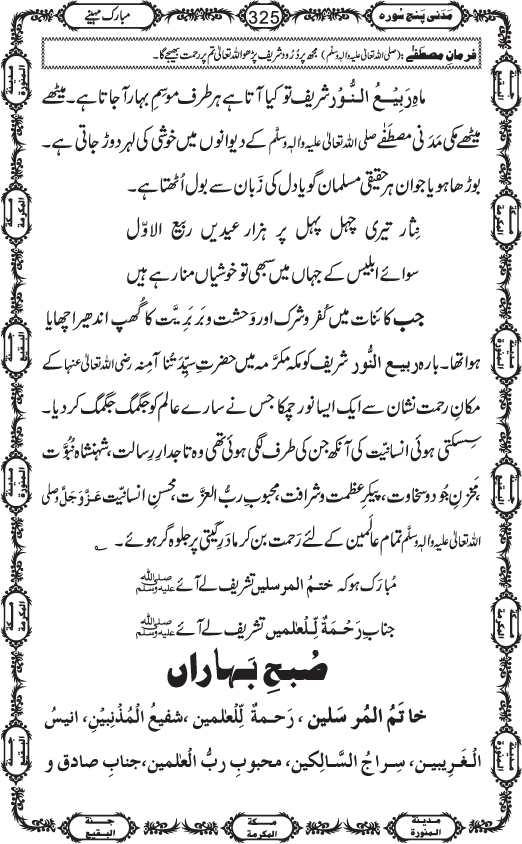 مَدَنی پنج سورہ
325
مبارک مہینے
فرمانِ مصطفےٰ : (صلی اللہ تعالیٰ علیہ واٰلہٖ وسلّم) مجھ پر دُرُود شریف پڑھو اللہ تعالیٰ تم پر رحمت بھیجے گا۔
ماہِ رَبِیْعُ النُّوْر شریف تو کیا آتا ہے ہر طرف موسمِ بہار آجاتا ہے۔ میٹھے
میٹھے مکی مَدَنی مصطَفٰے صلی اللہ تعالیٰ علیہ واٰلہٖ وسلَّم کے دیوانوں میں خوشی کی لہر دوڑ جاتی ہے۔
بوڑھا ہو یا جوان ہر حقیقی مسلمان گویا دل کی زَبان سے بول اُٹھتا ہے۔
نِثار تیری چہل پہل پر ہزار عیدیں ربیع الاوّل
سوائے ابلیس کے جہاں میں سبھی تو خوشیاں منا رہے ہیں
جب کائنات میں کُفر و شرک اور وَحشت و بَربَرِیَّت کا گُھپ اندھیرا چھایا
ہوا تھا۔ بارہ ربیع النُّور شریف کو مکہ مکرَّمہ میں حضرتِ سیِّدَتُنا آمِنہ رضی اللہ تعالیٰ عنہا کے
مکانِ رحمت نشان سے ایک ایسا نور چمکا جس نے سارے عالم کو جگمگ جگمگ کر دیا۔
سِسکتی ہوئی انسانیت کی آنکھ جن کی طرف لگی ہوئی تھی وہ تاجدارِ رسالت، شہنشاہِ نُبُوَّت
،مَخزنِ جُود و سخاوت، پیکرِ عظمت و شرافت، محبوبِ ربُّ العزَّت، محسنِ انسانیّت عَزَّوَجَلَّ و صلی
اللہ تعالیٰ علیہ واٰلہٖ وسلَّم تمام عالَمین کے لئے رَحمت بن کر مادرِ گیتی پر جلوہ گر ہوئے۔
مُبارَک ہو کہ ختمُ المرسلیں تشریف لے آئے صلی اللہ علیہ وسلم
جنابِ رَحْمَۃٌ لِّلْعٰلَمیں تشریف لے آئے صلی اللہ علیہ وسلم
صُبحِ بَہاراں
خاتَمُ المُرسَلین، رَحمۃٌ لِّلعٰلمین، شفیعُ المُذْنِبِیْن، انیسُ
الْغَرِیبین، سِراجُ السَّالِکین، محبوبِ ربُّ العٰلَمین، جنابِ صادق و
مدینۃ المنورۃ
جنۃ البقیع
مکۃ المکرمۃ
مکۃ المکرمۃ
جنۃ البقیع
مدینۃ المنورۃ
مدینۃ المنورۃ
جنۃ البقیع
مکۃ المکرمۃ
مکۃ المکرمۃ
جنۃ البقیع
مدینۃ المنورۃ
جنۃ البقیع
مکۃ المکرمۃ
مدینۃ المنورۃ